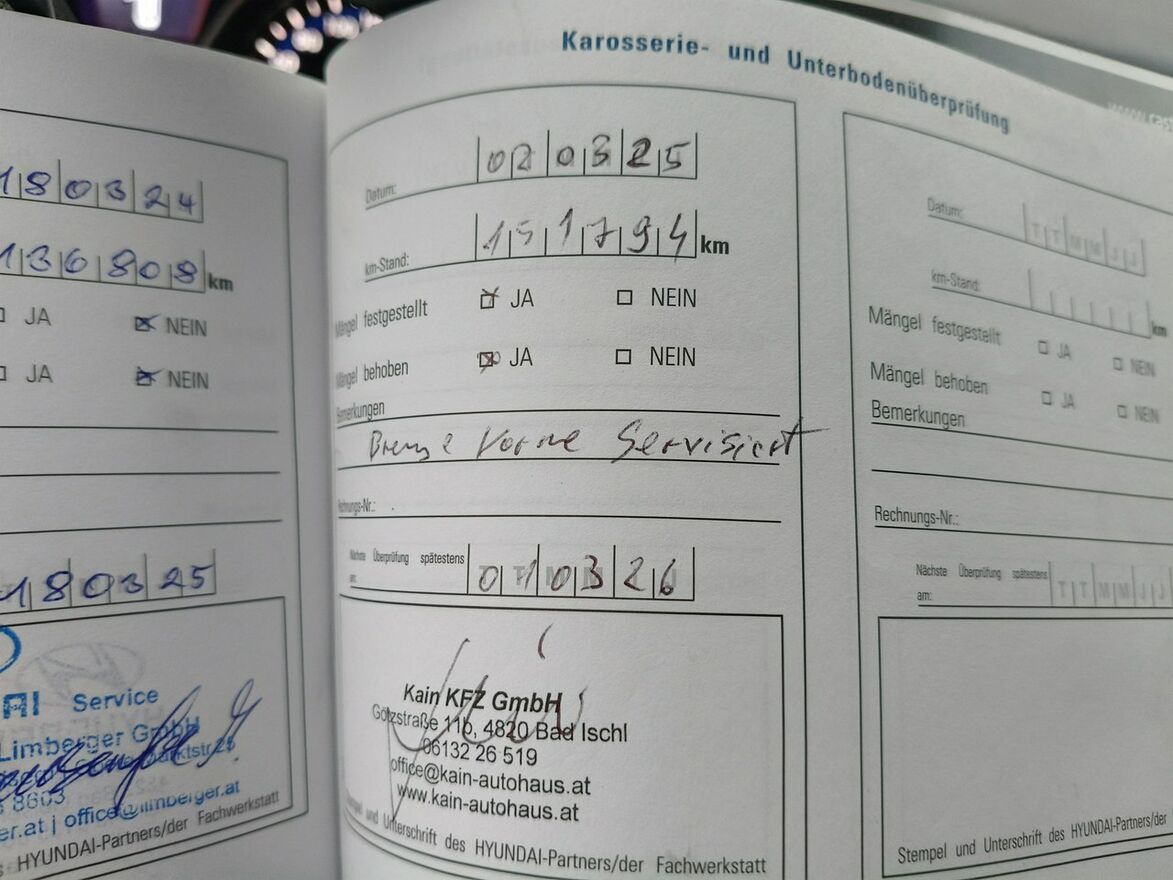 Karosserie- und Unterbodenüberprüfung
180324
136808 km
JA NEIN
JA NEIN
180325
AI Service
Limberger GmbH
8603
er.at | office@limberger.at
HYUNDAI-Partners/der Fachwerkstatt
Datum: 020325
km-Stand: 151794 km
Mängel festgestellt JA NEIN
Mängel behoben JA NEIN
Bemerkungen
Bremse Vorne Servisiert
Rechnungs-Nr.:
Nächste Überprüfung spätestens
am: 010326
Kain KFZ GmbH
Götzstraße 11b, 4820 Bad Ischl
06132 26 519
office@kain-autohaus.at
www.kain-autohaus.at
Stempel und Unterschrift des HYUNDAI-Partners/der Fachwerkstatt
Datum: TTMMJJ
km-Stand: km
Mängel festgestellt JA NEIN
Mängel behoben JA NEIN
Bemerkungen
Rechnungs-Nr.:
Nächste Überprüfung spätestens
am: TTMMJJ
Stempel und Unterschrift des HYUNDAI-Partners/der